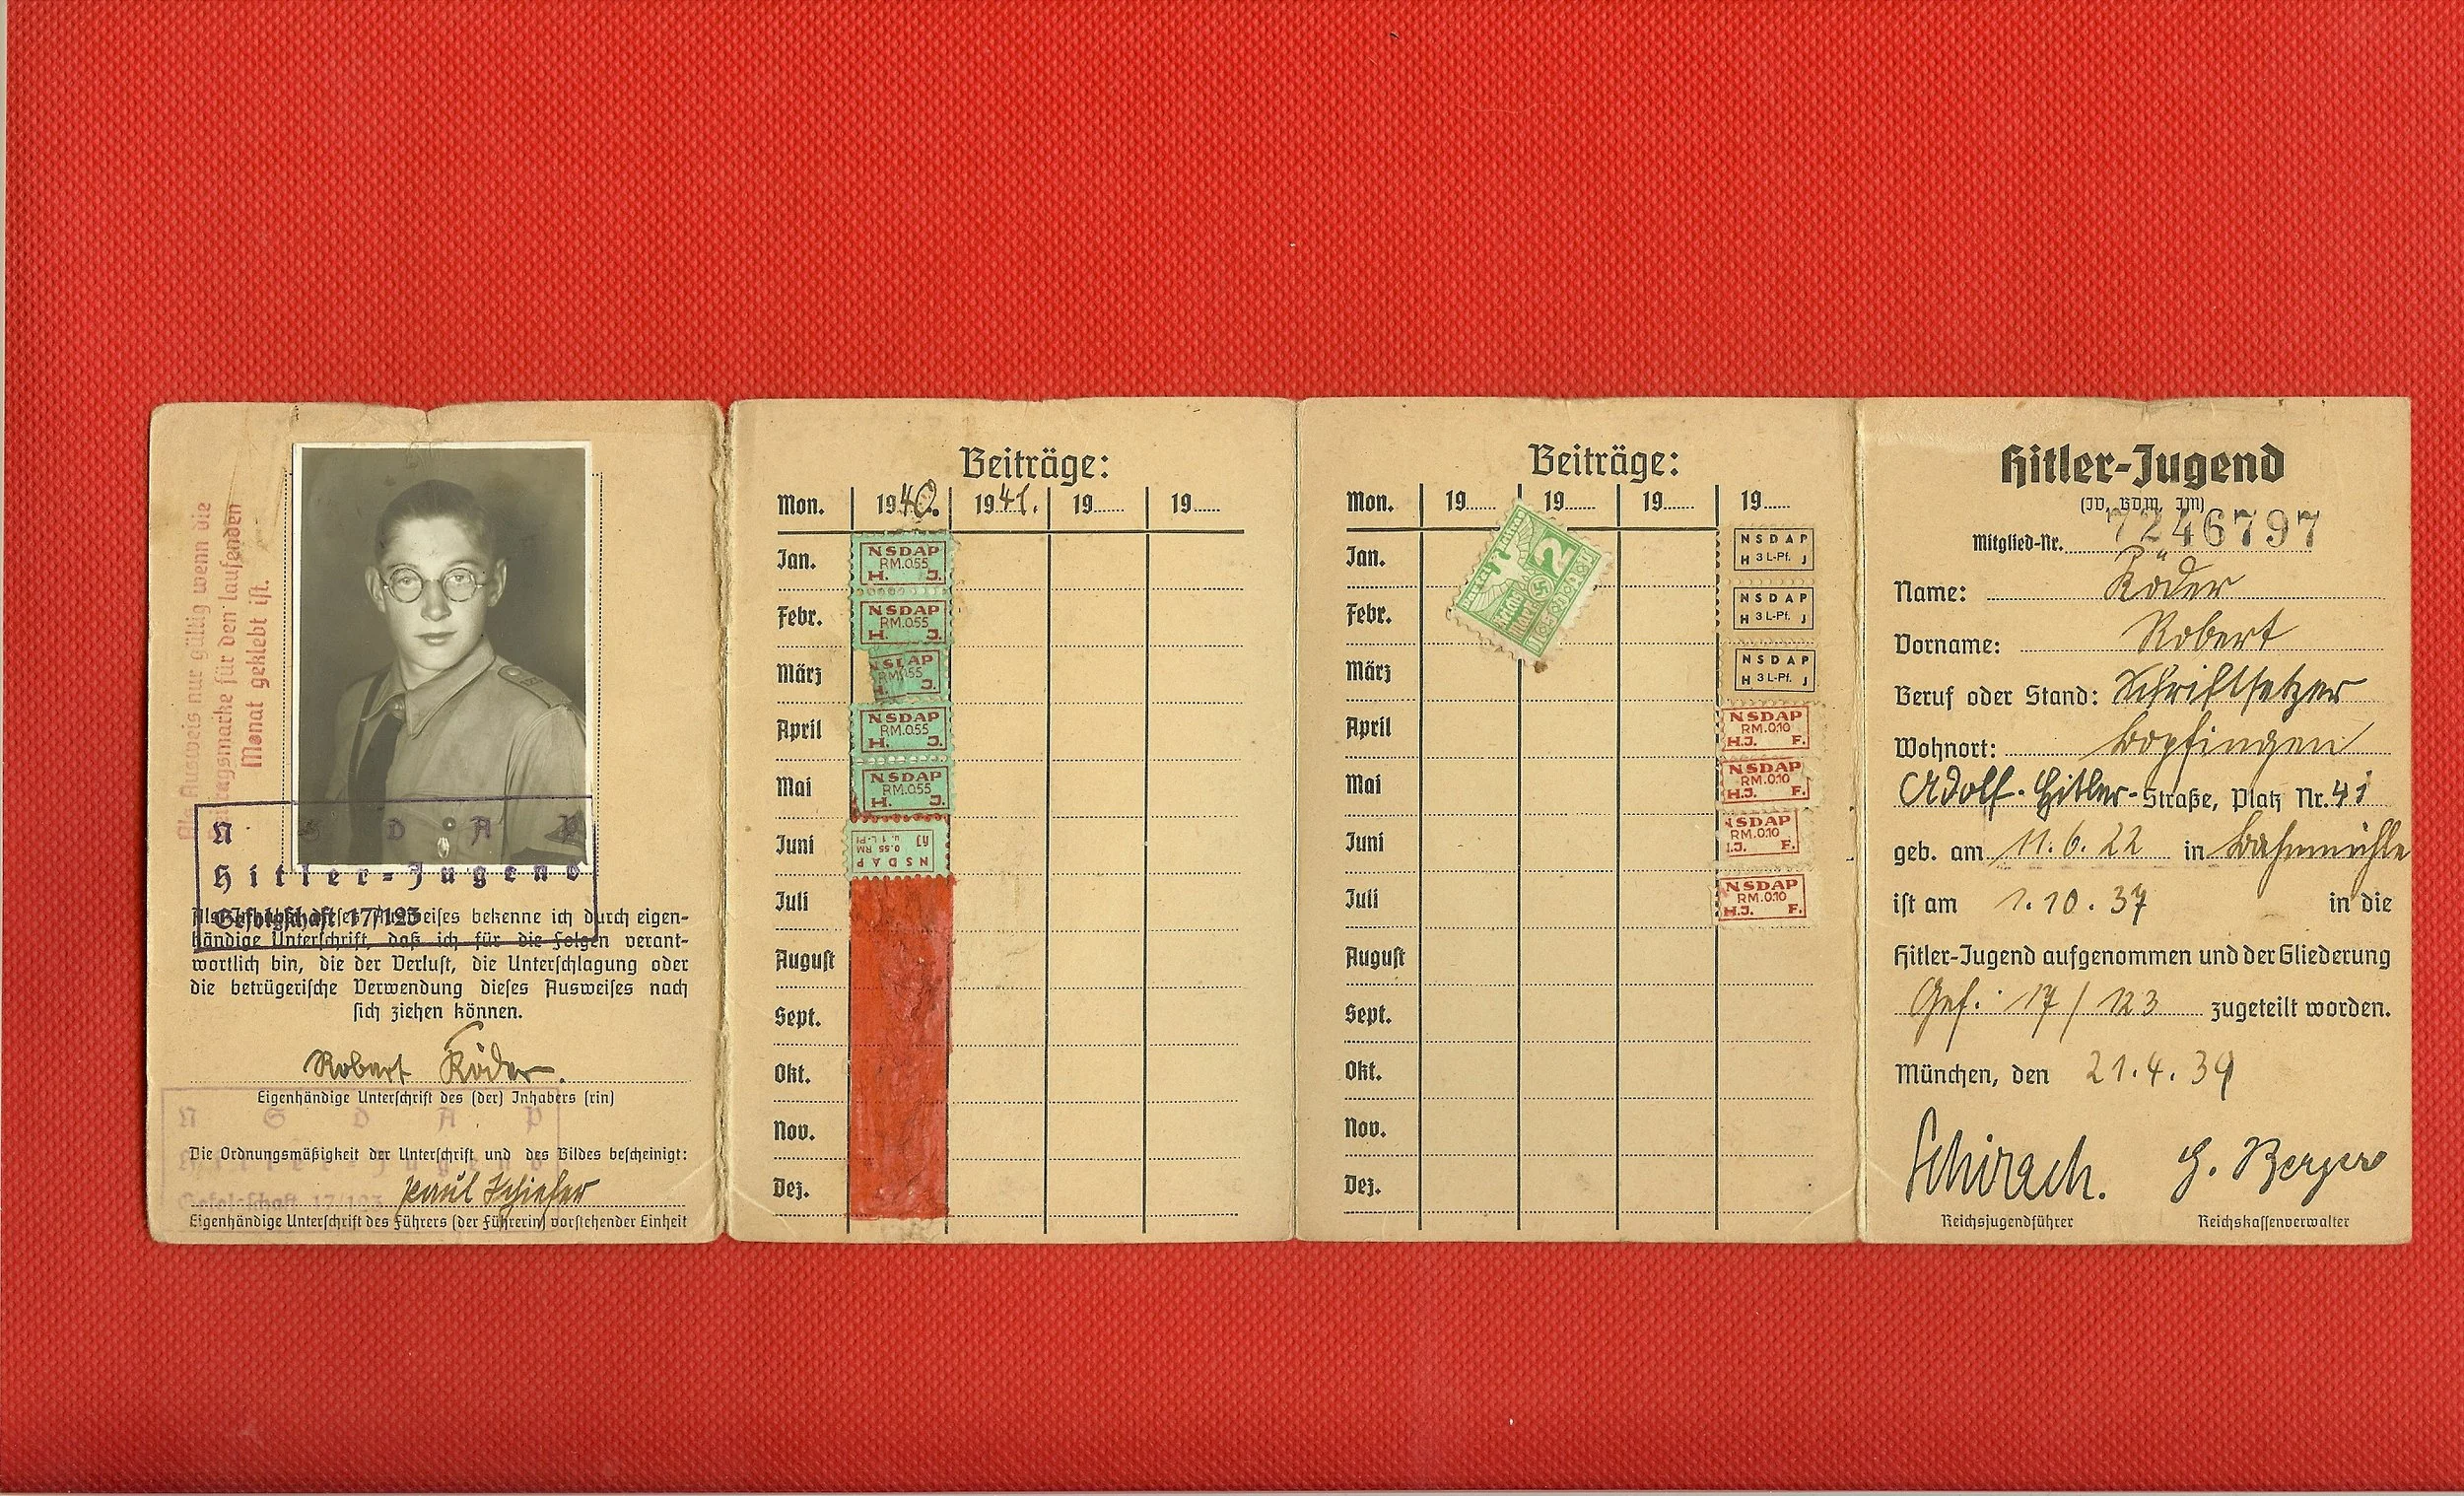 Als Ausweis nur gültig wenn die
Beitragsmarke für den laufenden
Monat geklebt ist.
N S D A P
Hitler-Jugend
Gefolgschaft 17/123
Als Inhaber dieses Ausweises bekenne ich durch eigen-
händige Unterschrift, daß ich für die Folgen verant-
wortlich bin, die der Verlust, die Unterschlagung oder
die betrügerische Verwendung dieses Ausweises nach
sich ziehen können.
Robert Röder.
Eigenhändige Unterschrift des (der) Inhabers (rin)
N S D A P
Hitler-Jugend
Gefolgschaft 17/123
Die Ordnungsmäßigkeit der Unterschrift und des Bildes bescheinigt:
Paul Schiefer
Eigenhändige Unterschrift des Führers (der Führerin) vorstehender Einheit
Beiträge:
Mon. 1940. 1941. 19...... 19......
Jan.
NSDAP
RM.0.55
H. J.
Febr.
NSDAP
RM.0.55
H. J.
März
NSDAP
RM.0.55
H. J.
April
NSDAP
RM.0.55
H. J.
Mai
NSDAP
RM.0.55
H. J.
Juni
NSDAP
0.55 RM
u. 1 L-Pf
HJ
Juli
August
Sept.
Okt.
Nov.
Dez.
Beiträge:
Mon. 19...... 19...... 19...... 19......
Jan.
2
NSDAP
H 3 L-Pf. J
Febr.
NSDAP
H 3 L-Pf. J
März
NSDAP
H 3 L-Pf. J
April
NSDAP
RM.0.10
H.J. F.
Mai
NSDAP
RM.0.10
H.J. F.
Juni
NSDAP
RM.0.10
H.J. F.
Juli
NSDAP
RM.0.10
H.J. F.
August
Sept.
Okt.
Nov.
Dez.
Hitler-Jugend
(JV, BDM, JM)
Mitglied-Nr. 7246797
Name: Röder
Vorname: Robert
Beruf oder Stand: Schriftsetzer
Wohnort: Bopfingen
Adolf-Hitler-Straße, Platz Nr. 41
geb. am 11.6.22 in Bahnmühle
ist am 1.10.37 in die
Hitler-Jugend aufgenommen und der Gliederung
Gef. 17/123 zugeteilt worden.
München, den 21.4.39
Schirach. G. Berger
Reichsjugendführer Reichskassenverwalter